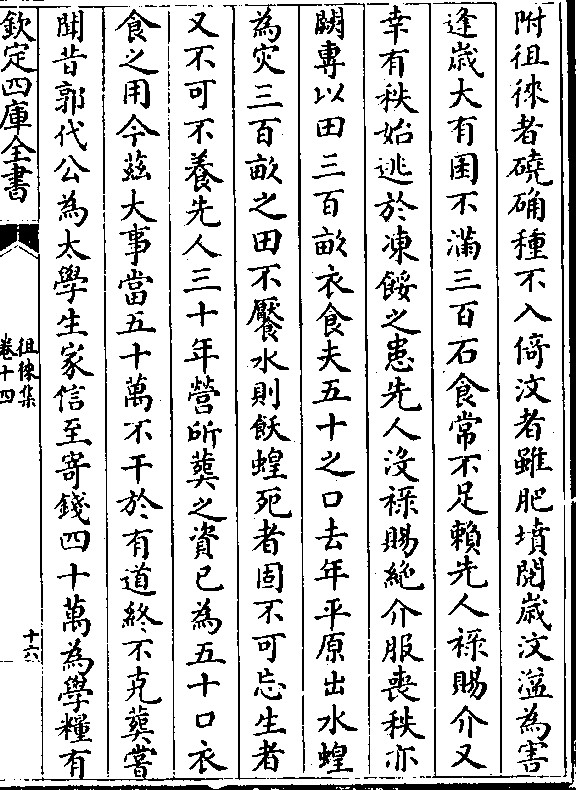 附徂徠者磽确種不入倚汶者雖肥墳閱歲汶溢為害
逢歲大有囷不滿三百石食常不足賴先人祿賜介又
幸有秩始逃於凍餒之患先人沒祿賜絶介服喪秩亦
闕專以田三百畝衣食夫五十之口去年平原出水蝗
為灾三百畝之田不饜水則飫蝗死者固不可忘生者
又不可不養先人三十年營所葬之資已為五十口衣
食之用今茲大事當五十萬不干於有道終不克葬嘗
聞昔郭代公為太學生家信至寄錢四十萬為學糧有
欽定四庫全書
徂徠集
卷十四
十六